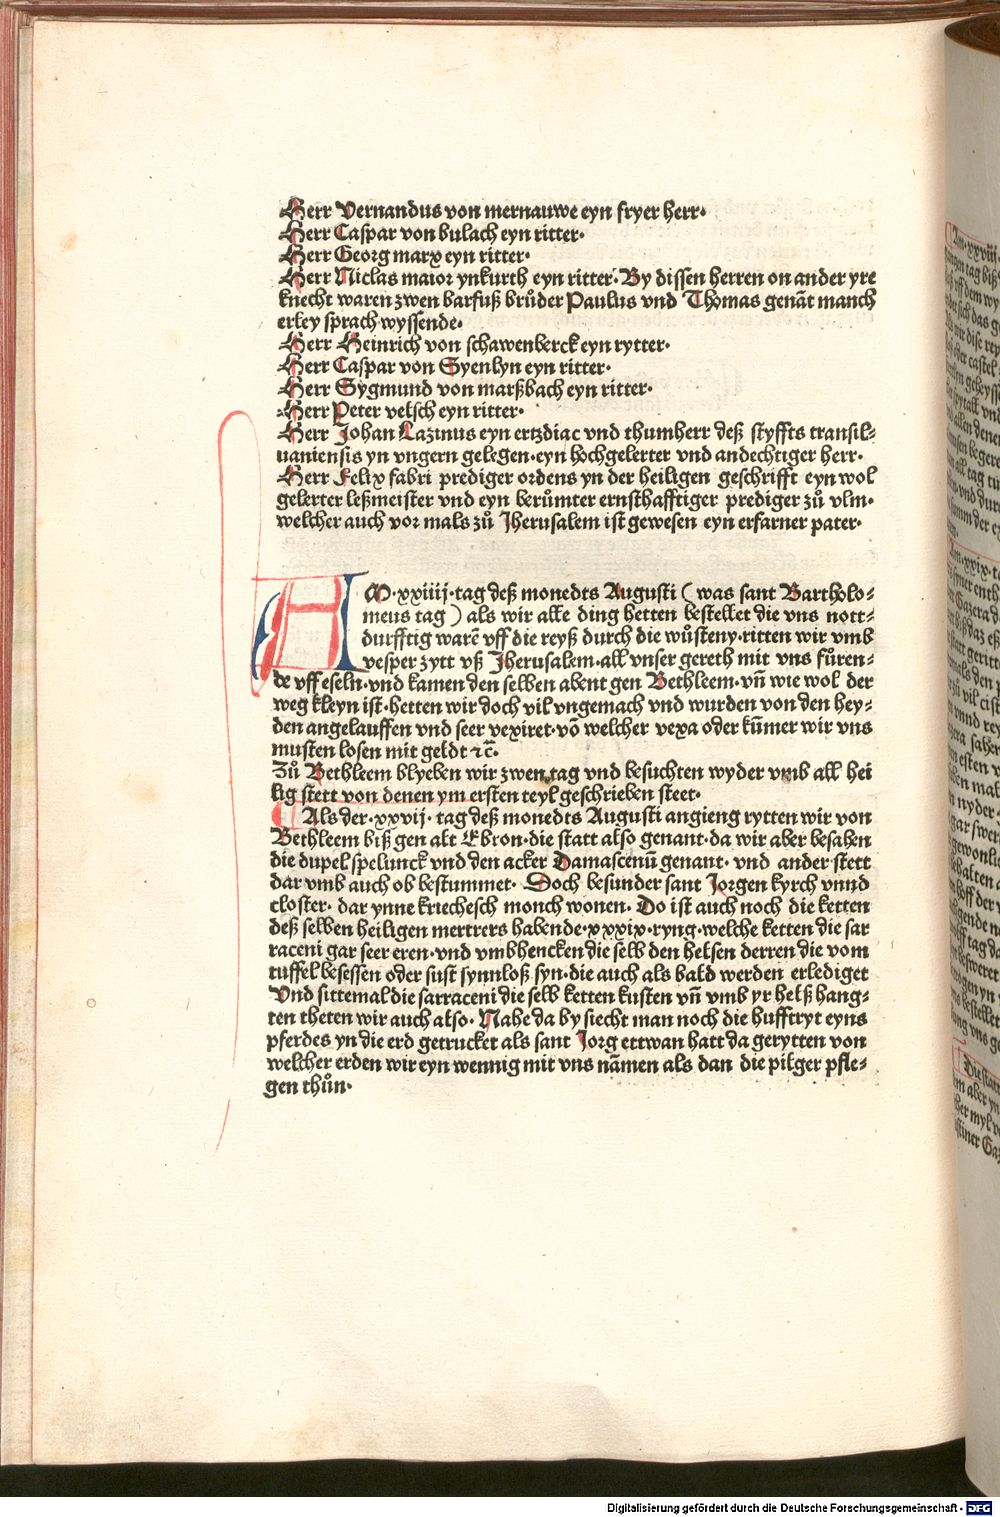 Herr Vernandus von mernauwe eyn fryer herr·
Herr Caspar von bulach eyn ritter·
Herr Georg marx eyn ritter·
Herr Niclas maior ynkurth eyn ritter· By dissen herren on ander yre
knecht waren zwen barfuß brůder Paulus vnd Thomas genāt manch
erley sprach wyssende·
Herr Heinrich von schawenberck eyn rytter·
Herr Caspar von Syenlyn eyn ritter·
Herr Sygmund von marßbach eyn ritter·
Herr Peter velsch eyn ritter·
Herr Johan Lazinus eyn ertzdiac vnd thumherr deß styffts transil⸗
uaniensis yn vngern gelegen·eyn hochgelerter vnd andechtiger herr·
Herr Felix fabri prediger ordens yn der heiligen geschrifft eyn wol
gelerter leßmeister vnd eyn berůmter ernsthafftiger prediger zů vlm·
welcher auch vor mals zů Jherusalem ist gewesen eyn erfarner pater·
AM·xxiiij·tag deß monedts Augusti (was sant Bartholo⸗
meus tag) als wir alle ding hetten bestellet die vns nott⸗
durfftig warē vff die reyß durch die wůsteny·ritten wir vmb
vesper zytt vß Jherusalem·all vnser gereth mit vns fůren⸗
de vff eseln·vnd kamen den selben abent gen Bethleem·vn̄ wie wol der
weg kleyn ist·hetten wir doch vil vngemach vnd wurden von den hey⸗
den angelauffen vnd seer vexiret·vō welcher vexa oder kūmer wir vns
musten losen mit geldt ⁊c̄·
Zů Bethleem blyeben wir zwen tag vnd besuchten wyder vmb all hei
lig stett von denen ym ersten teyl geschrieben steet·
Als der·xxvij·tag deß monedts Augusti angieng rytten wir von
Bethleem biß gen alt Ebron·die statt also genant·da wir aber besahen
die dupel spelunck vnd den acker Damascenū genant·vnd ander stett
dar vmb auch ob bestummet· Doch besunder sant Jorgen kyrch vnnd
closter· dar ynne kriechesch monch wonen· Do ist auch noch die ketten
deß selben heiligen mertrers habende·xxxix·ryng·welche ketten die sar
raceni gar seer eren·vnd vmbhencken die selb den helsen derren die vom
tuffel besessen oder sust synnloß syn·die auch als bald werden erlediget
Vnd sittemal die sarraceni die selb ketten kusten vn̄ vmb yr helß hang⸗
ten theten wir auch also· Nahe da by siecht man noch die hufftryt eyns
pferdes yn die erd getrucket als sant Jorg ettwan hatt da gerytten von
welcher erden wir eyn wennig mit vns nāmen als dan die pilger pfle⸗
gen thůn·
Digitalisierung gefördert durch die Deutsche Forschungsgemeinschaft - DFG